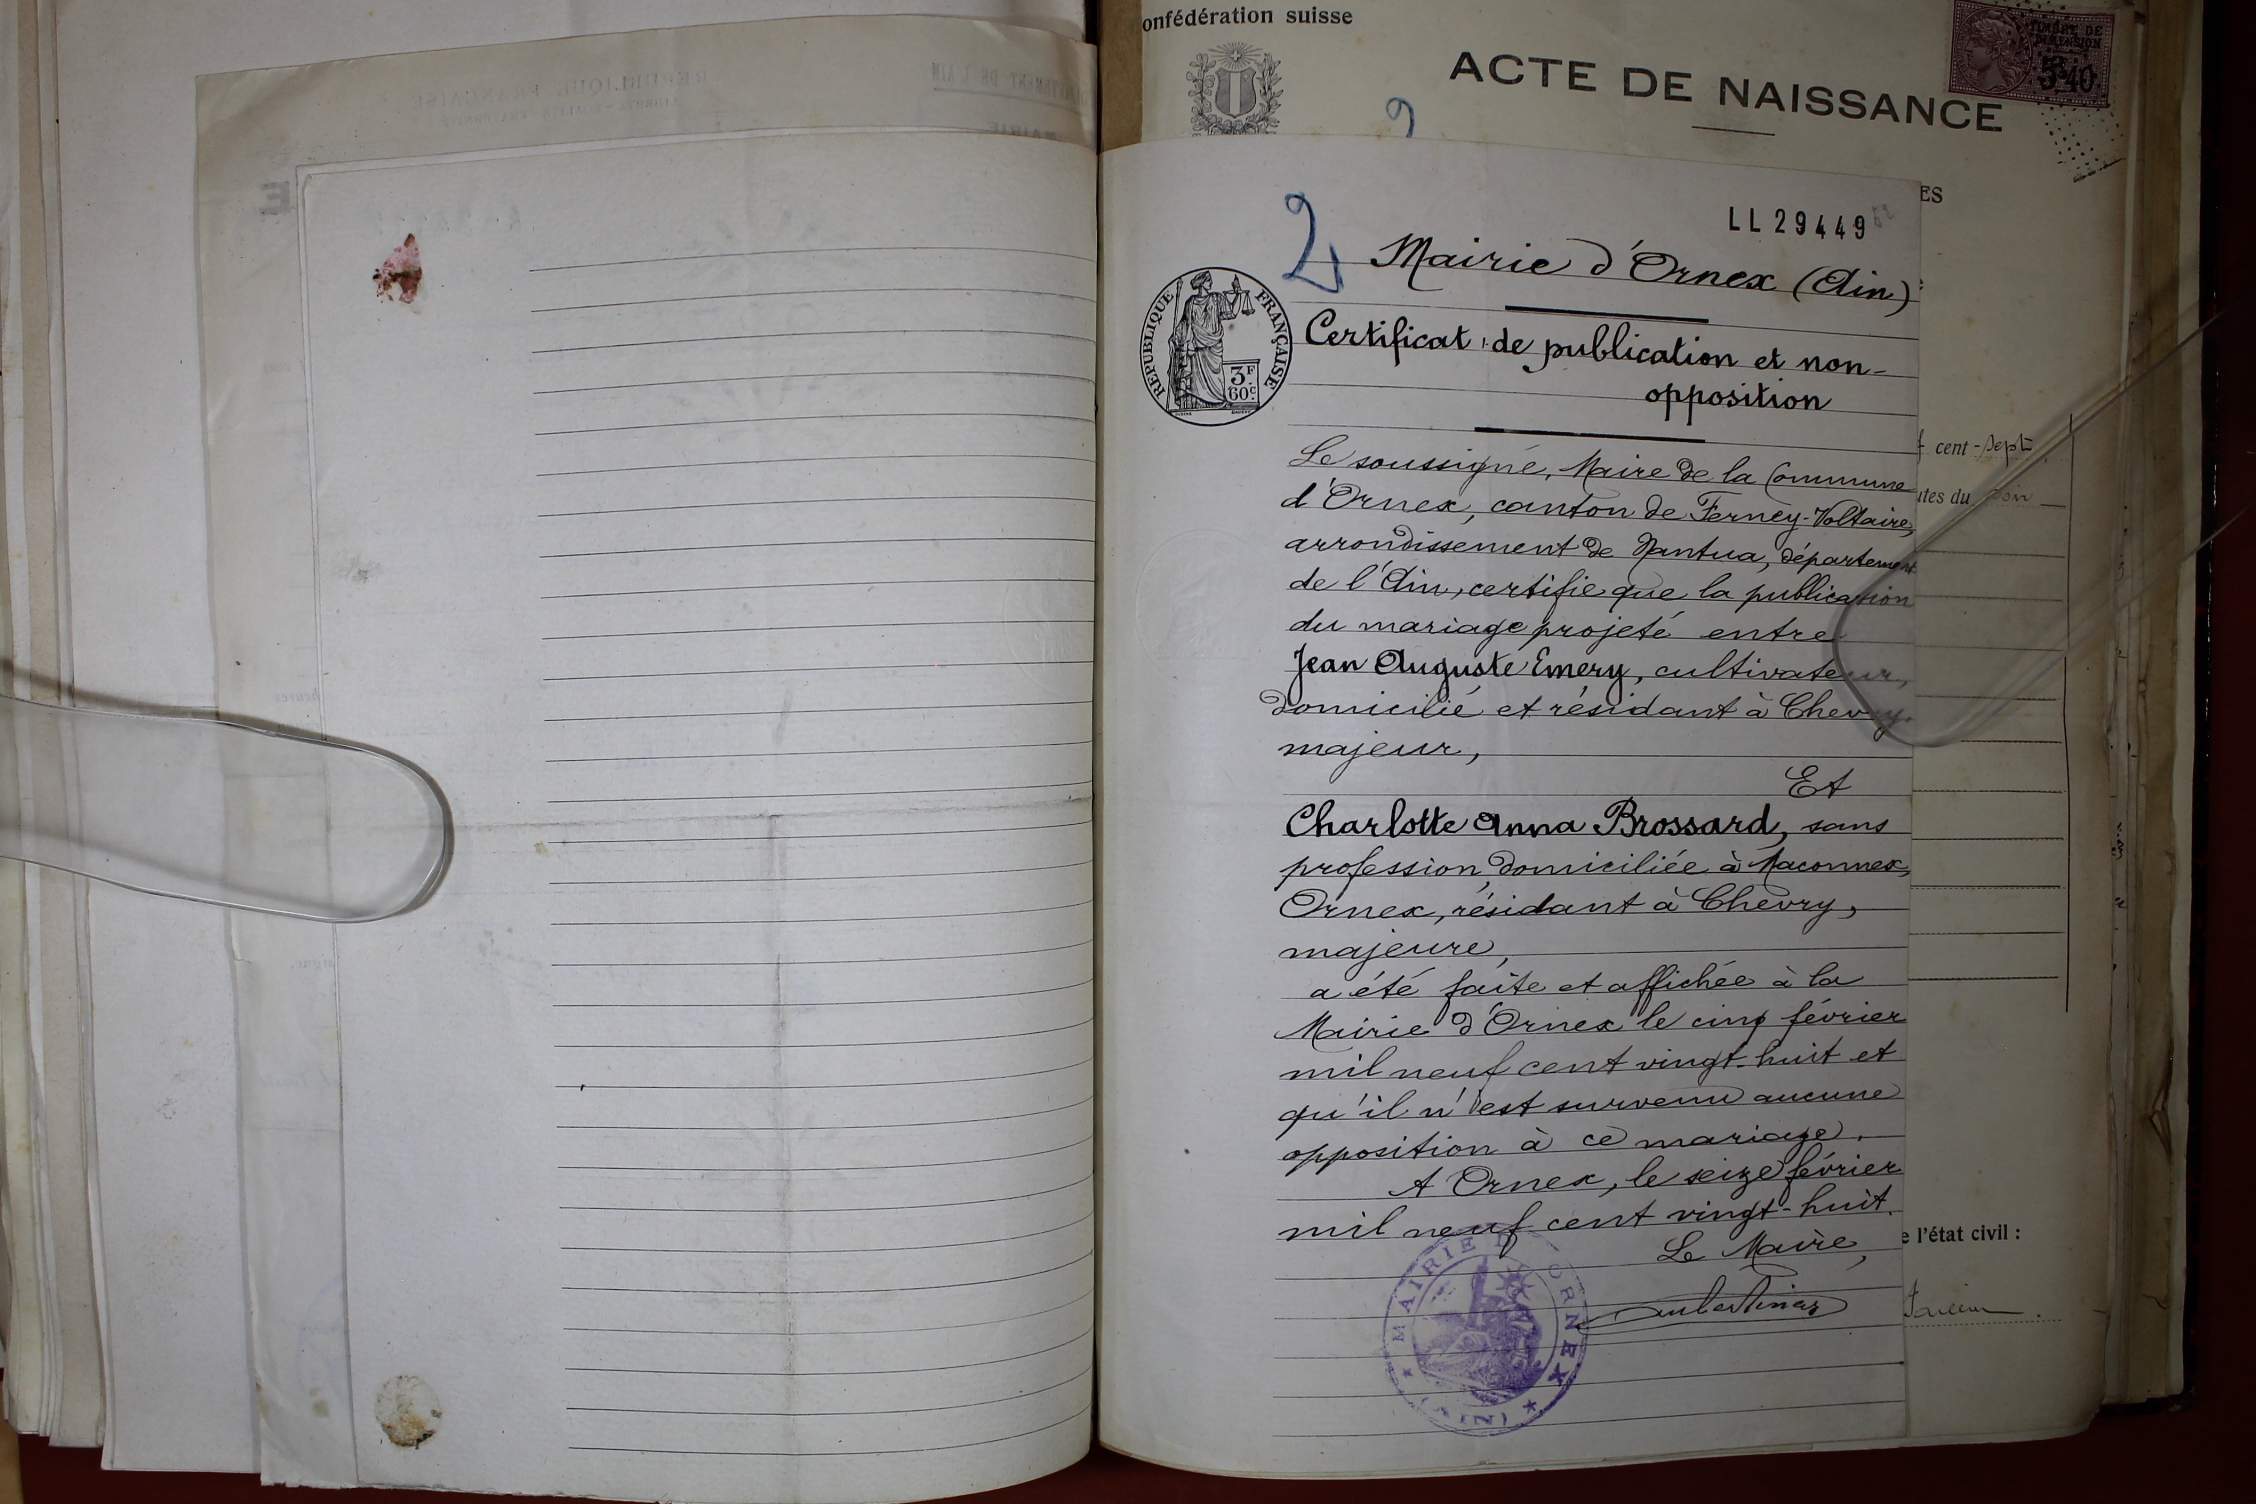 onfédération suisse
ACTE DE NAISSANCE
TIMBRE DE
DIMENSION
ES
2
LL 29449
Mairie d'Ornex (Ain)
RÉPUBLIQUE FRANÇAISE
3F
60c
Certificat de publication et non-
opposition
Le soussigné, Maire de la Commune
d'Ornex, canton de Ferney-Voltaire,
arrondissement de Nantua, département
de l'Ain, certifie que la publication
du mariage projeté entre
Jean Auguste Emery, cultivateur,
domicilié et résidant à Chevry,
majeur,
Et
Charlotte Anna Brossard, sans
profession, domiciliée à Maconnex,
Ornex, résidant à Chevry,
majeure,
a été faite et affichée à la
Mairie d'Ornex le cinq février
mil neuf cent vingt-huit et
qu'il n'est survenu aucune
opposition à ce mariage.
A Ornex, le seize février
mil neuf cent vingt-huit.
Le Maire,
MAIRIE D'ORNEX
* (AIN) *
f cent-sept
utes du
e l'état civil :